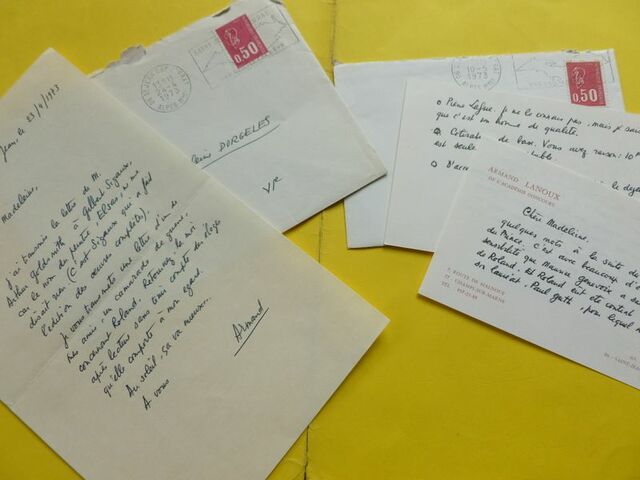 Jean, le 23/4/1973
Madeleine,
J'ai transmis la lettre de M.
Arthur Goldsmith à Gilbert Sigaux,
car le nom du peintre Elsen, ne me
disait rien (C'est Sigaux qui a fait
l'édition des œuvres complètes).
Je vous transmets une lettre d'un de
mes amis, un camarade de guerre,
concernant Roland. Retournez-la moi
après lecture sans tenir compte des éloges
qu'elle comporte à mon égard.
Au soleil, ça va mieux.
A vous
Armand
1973
ALPES MMES
0,50
DORGELES
1973
0,50
o Pierre Lafue. Je ne le connais pas, mais je sais
que c'est un homme de qualité.
o Cotisation de base. Vous avez raison : 10
est seule
o D'acc
ARMAND LANOUX
DE L'ACADÉMIE GONCOURT
Chère Madeleine,
quelques mots à la suite
du Prince. C'est avec beaucoup d'
sensibilité que Maurice Genevoix a
de Roland. Et Roland eût été content
son lauréat, Paul Guth, pour lequel
5, ROUTE DE MALNOUE
77 CHAMPS-SUR-MARNE
TÉL.